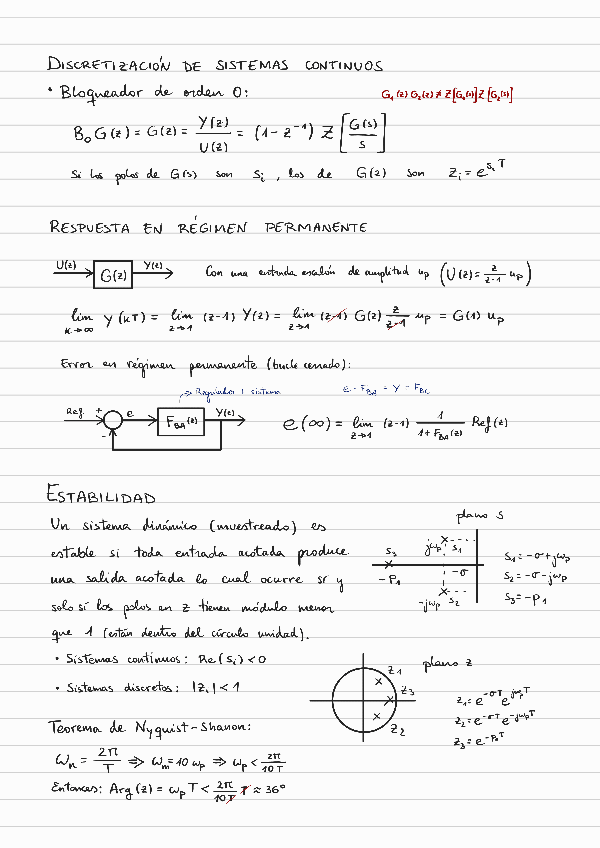 DISCRETIZACIÓN DE SISTEMAS CONTINUOS
• Bloqueador de orden 0:
G₁(z) G₂(z) ≠ Z[G₁(s)] Z[G₂(s)]
B₀G(z) = G(z) = Y(z)/U(z) = (1 - z⁻¹) Z[G(s)/s]
Si los polos de G(s) son sᵢ, los de G(z) son zᵢ = e^(sᵢT)
RESPUESTA EN RÉGIMEN PERMANENTE
U(z) G(z) Y(z)
Con una entrada escalón de amplitud uₚ (U(z) = z/(z-1) uₚ)
lim k→∞ y(kT) = lim z→1 (z-1) Y(z) = lim z→1 (z-1) G(z) z/(z-1) uₚ = G(1) uₚ
Error en régimen permanente (bucle cerrado):
Regulador | sistema
e · F_BA = Y - F_BC
Ref + - e F_BA(z) Y(z)
e(∞) = lim z→1 (z-1) 1/(1+F_BA(z)) Ref(z)
ESTABILIDAD
Un sistema dinámico (muestreado) es
estable si toda entrada acotada produce
una salida acotada lo cual ocurre si y
solo si los polos en z tienen módulo menor
que 1 (están dentro del círculo unidad).
plano s
s₃ jωₚ s₁
-P₁ -σ
-jωₚ s₂
s₁ = -σ+jωₚ
s₂ = -σ-jωₚ
s₃ = -P₁
• Sistemas continuos: Re(sᵢ) < 0
• Sistemas discretos: |zᵢ| < 1
plano z
z₁
z₃
z₂
z₁ = e^(-σT) e^(jωₚT)
z₂ = e^(-σT) e^(-jωₚT)
z₃ = e^(-P₁T)
Teorema de Nyquist-Shanon:
ωₘ = 2π/T ⇒ ωₘ = 10 ωₚ ⇒ ωₚ < 2π/10T
Entonces: Arg(z) = ωₚ T < 2π/10T T ≈ 36°